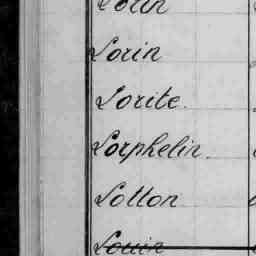 Lorin
Lorite
Lorphelin
Lotton
Louin